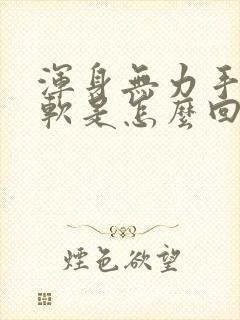 渾身無力手
軟是怎麼回
煙色欲望